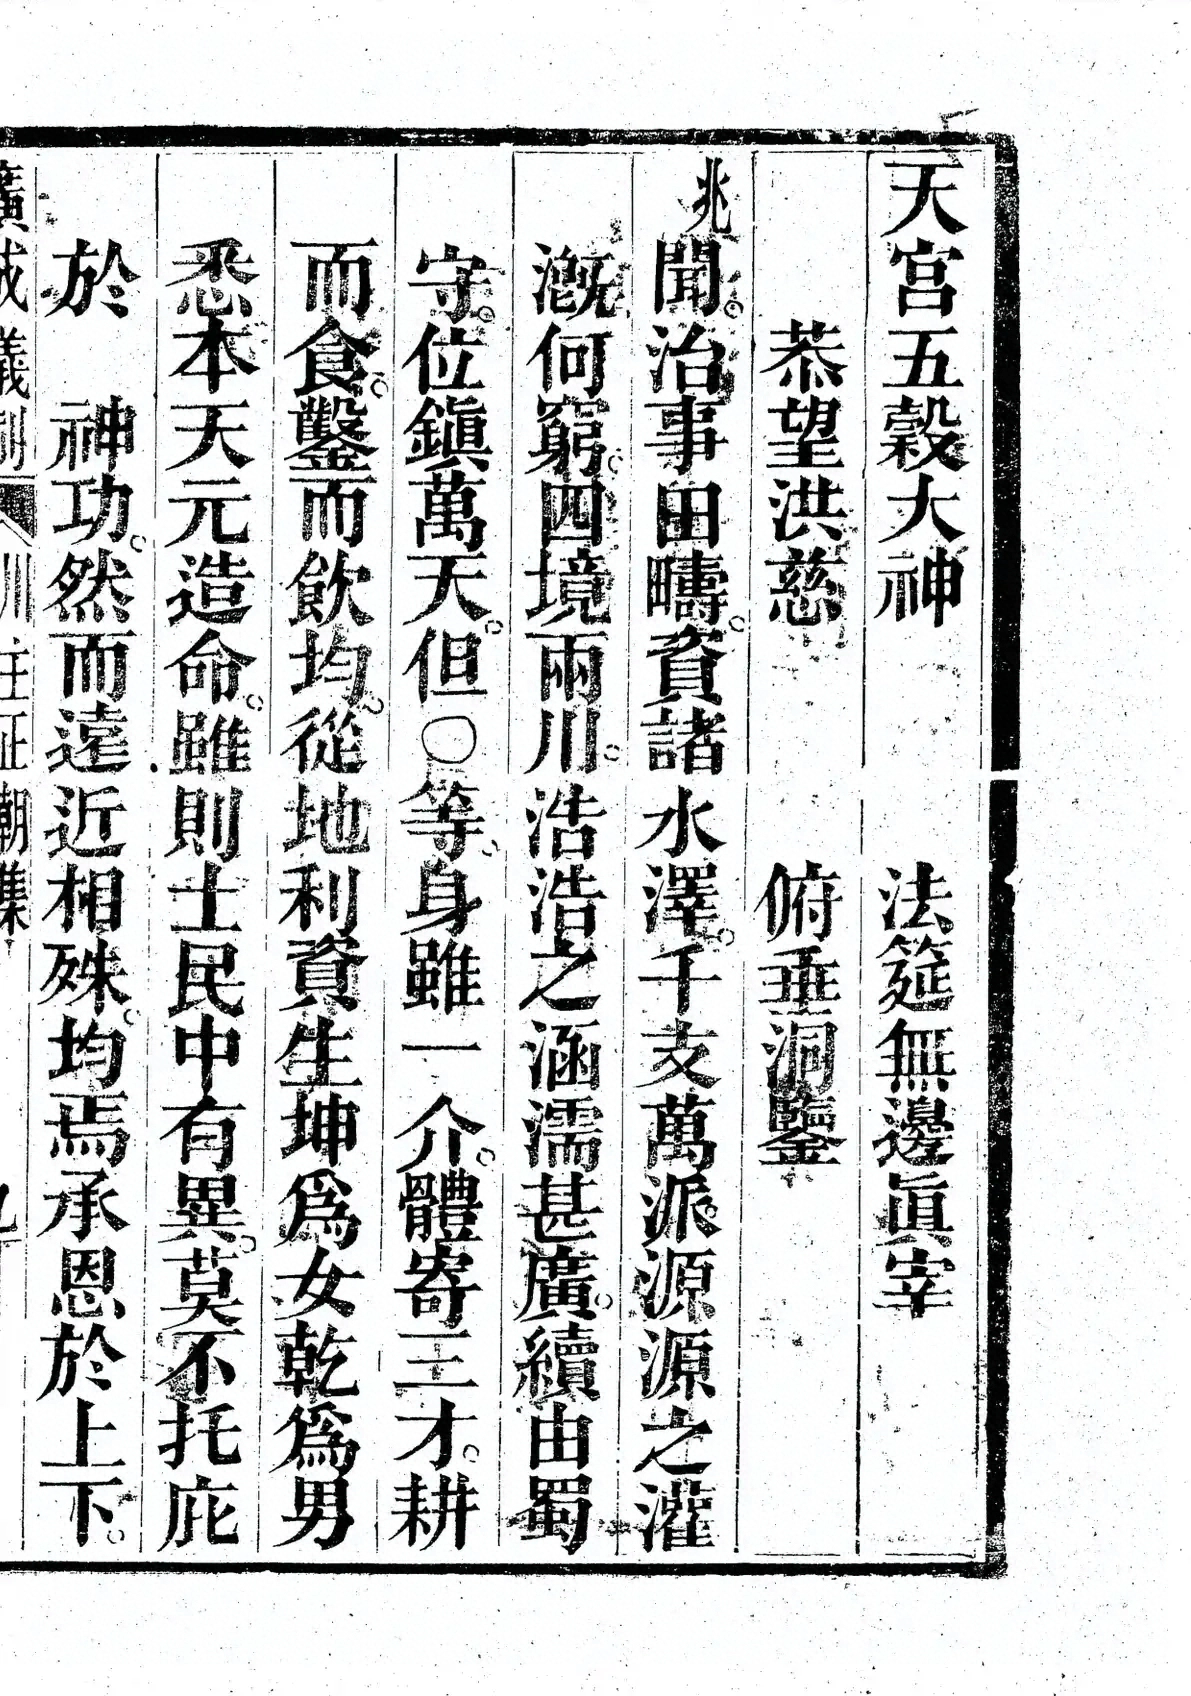 天宮五穀大神　法筵無邊眞宰
恭望洪慈　俯垂洞鑒
兆聞。治事田疇。資諸水澤。千支萬派源源之灌
漑何窮。四境兩川。浩浩之涵濡甚廣。續由蜀
守。位鎭萬天。但〇等。身雖一介。體寄三才。耕
而食。鑿而飲均。從地利資生坤爲女乾爲男
悉本天元造命。雖則士民中有異。莫不托庇
於　神功。然而遠近相殊。均焉承恩於上下。
廣成儀制　川主正朝集